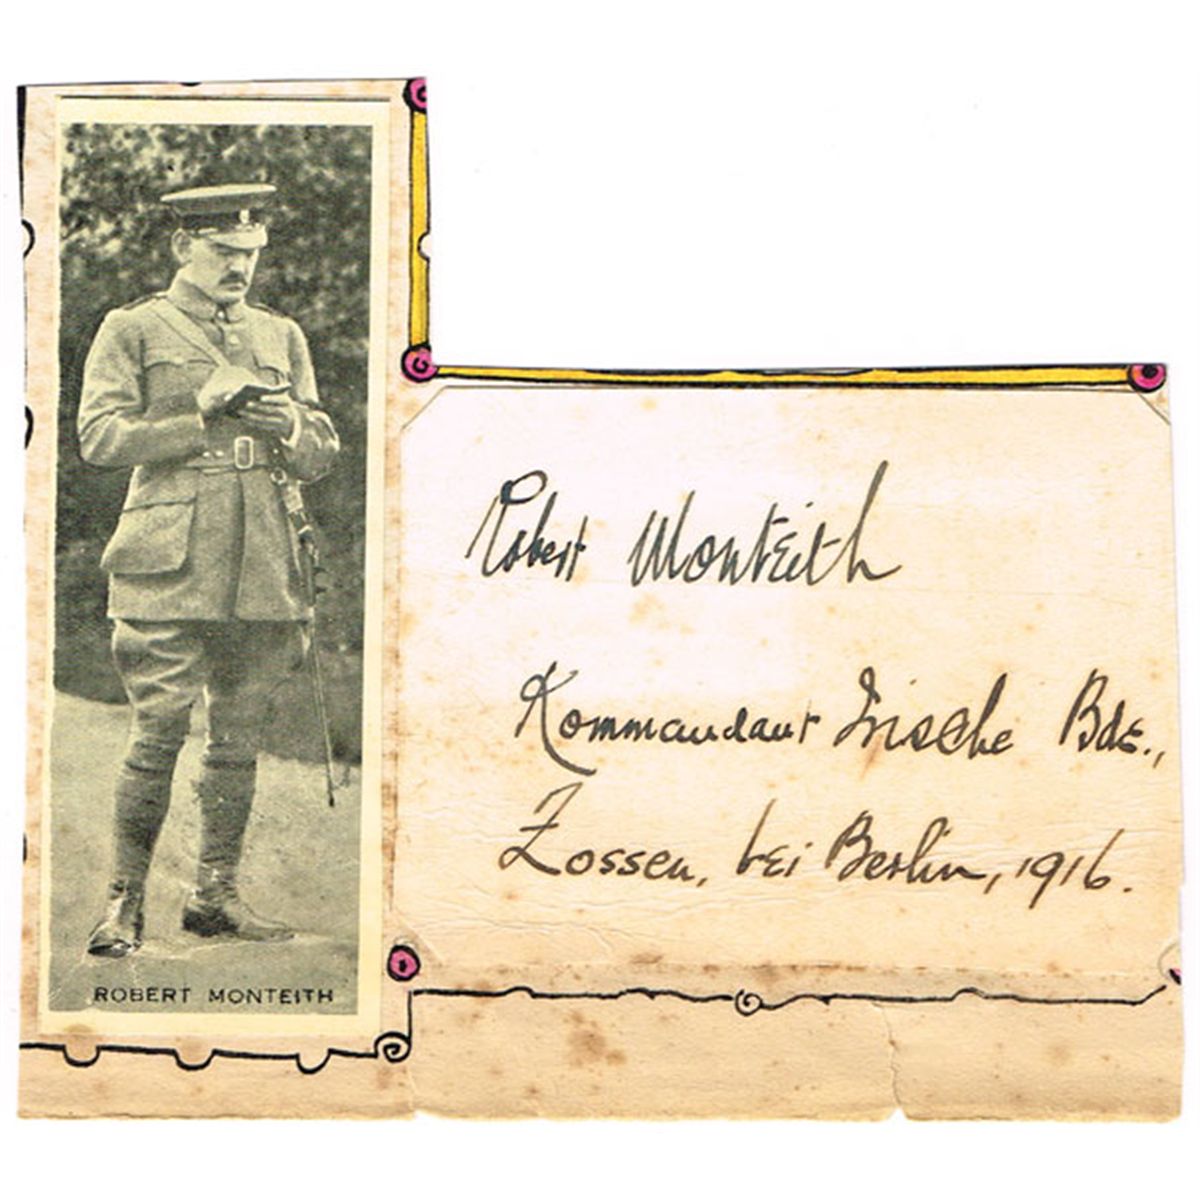 ROBERT MONTEITH
Robert Monteith
Kommandant Irische Bde.,
Zossen, bei Berlin, 1916.